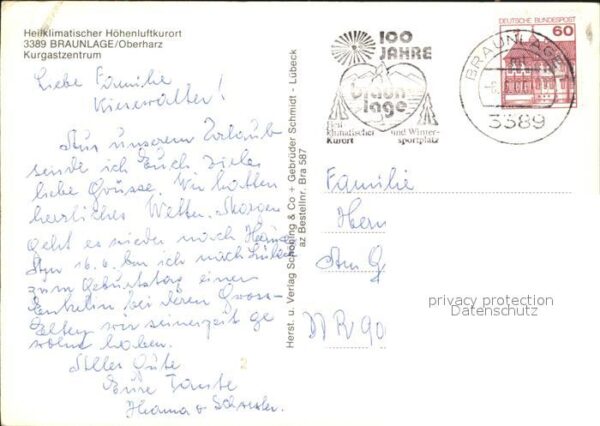 Heilklimatischer Höhenluftkurort
3389 BRAUNLAGE/Oberharz
Kurgastzentrum
Liebe Familie
Kiesewalter!
Aus unserem Urlaub
sende ich Euch viele
liebe Grüsse. Wir hatten
herrliches Wetter. Morgen
geht es wieder nach
Am 16.6. bin ich nach
zum Geburtstag einer
Enkelin bei deren Gross-
Eltern wir seinerzeit ge
wohnt haben.
Alles Gute
Eure Tante
Hanna v.
Herst. u. Verlag Schöning & Co + Gebrüder Schmidt - Lübeck
az Bestellnr. Bra 587
100
JAHRE
braun
lage
Heil-
klimatischer und Winter-
Kurort sportplatz
BRAUNLAGE 1
3389
DEUTSCHE BUNDESPOST
60
Familie
Herrn
Am G
privacy protection
Datenschutz